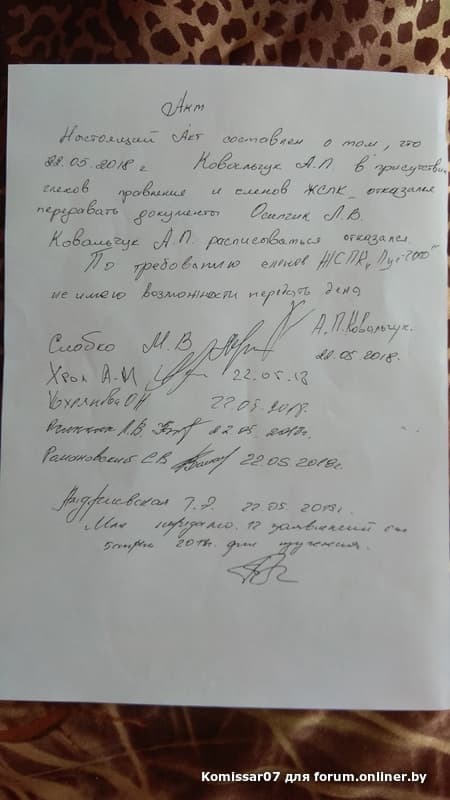 Акт
Настоящий Акт составлен о том, что
22.05.2018 г Ковальчук А.П. в присутствии
членов правления и членов ЖСПК отказался
передавать документы Осипчик Л.В.
Ковальчук А.П. расписоваться отказался.
По требованию членов ЖСПК „Пуг-2000"
не имею возможности передать дела
А.П.Ковальчук.
22.05.2018.
Слобко М.В
Хрол А.И 22.05.18
22.05.2018.
Л.В. 22.05.2018г.
Романовский С.В 22.05.2018г.
22.05.2018г.
Мне передано 12 заявлений от
2018г. для изучения.
Komissar07 для forum.onliner.by